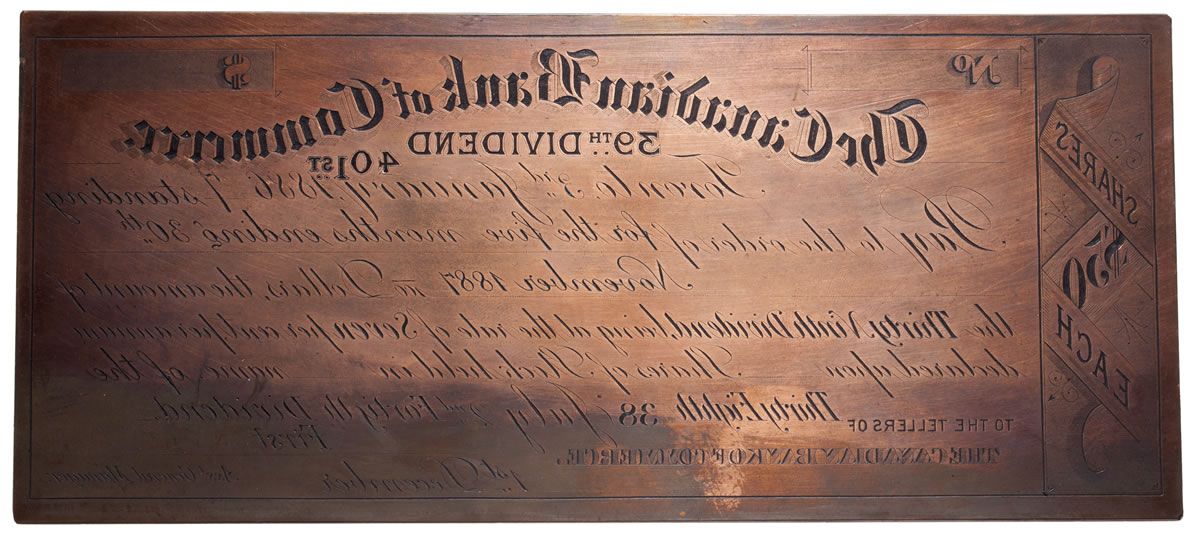 No $
The Canadian Bank of Commerce.
39TH DIVIDEND
401ST
Toronto, 3rd January, 1886 7 standing
Pay to the order of for the five months ending 30th
November 1887 Dollars, the amount of
the Thirty Ninth Dividend, being at the rate of Seven per cent per annum
declared upon Shares of Stock held in name of the
TO THE TELLERS OF Thirty Eighth 38 July 2nd Fortieth Dividend
First
THE CANADIAN BANK OF COMMERCE.
1st December
General Manager.
SHARES
$50
EACH